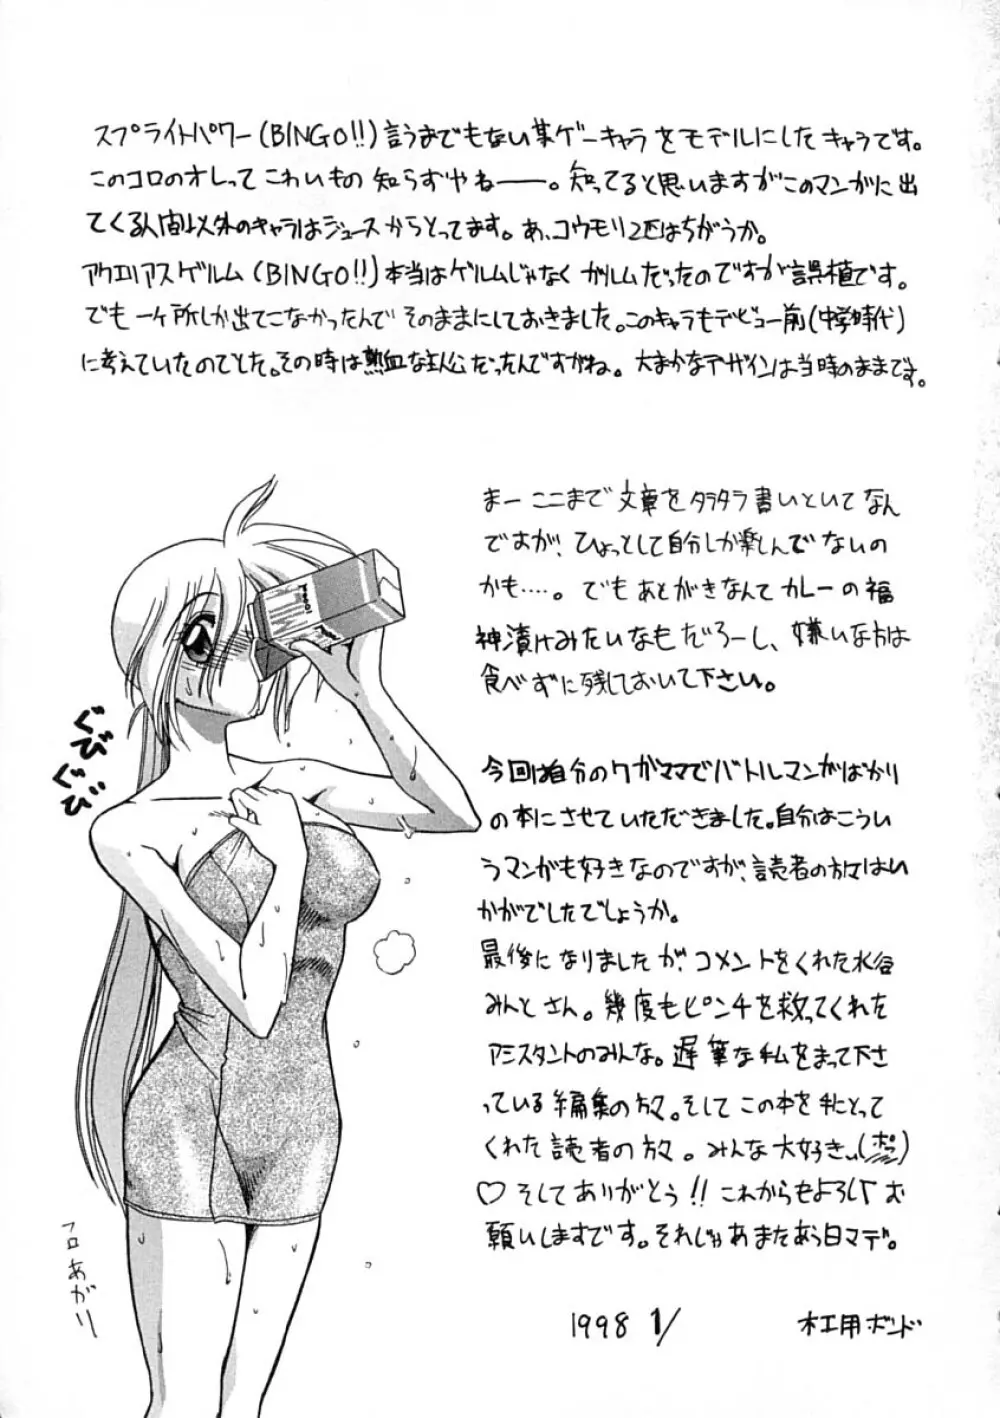 スプライトパワー(BINGO!!)言うまでもない某ゲーキャラをモデルにしたキャラです。
このコロのオレってこわいもの知らずやねー。知ってると思いますがこのマンガに出
てくる人間以外のキャラはジュースからとってます。あ、コウモリ2匹はちがうか。
アクエリアスゲルム(BINGO!!)本当はゲルムじゃなくガルムだったのですが誤植です。
でも一ヶ所しか出てこなかったんでそのままにしておきました。このキャラもデビュー前(中学時代)
に考えていたのでした。その時は熱血な主人公だったんですがね。大まかなデザインは当時のままです。
まーここまで文章をタラタラ書いといてなん
ですが、ひょっとして自分しか楽しんでないの
かも‥‥。でもあとがきなんてカレーの福
神漬けみたいなもだろーし、嫌いな方は
食べずに残しておいて下さい。
ぐびぐび
今回は自分のワガママでバトルマンガばかり
の本にさせていただきました。自分はこうい
うマンガも好きなのですが、読者の方々はい
かがでしたでしょうか。
最後になりましたが、コメントをくれた水谷
みんとさん。幾度もピンチを救ってくれた
アシスタントのみんな。遅筆な私をまって下さ
っている編集の方々。そしてこの本を手にとって
くれた読者の方々。みんな大好きぃ(ポッ)
♡そしてありがとう!!これからもよろしくお
願いしますです。それじゃあまたあう日マデ。
フロあがり
1998 1/
木工用ボンド